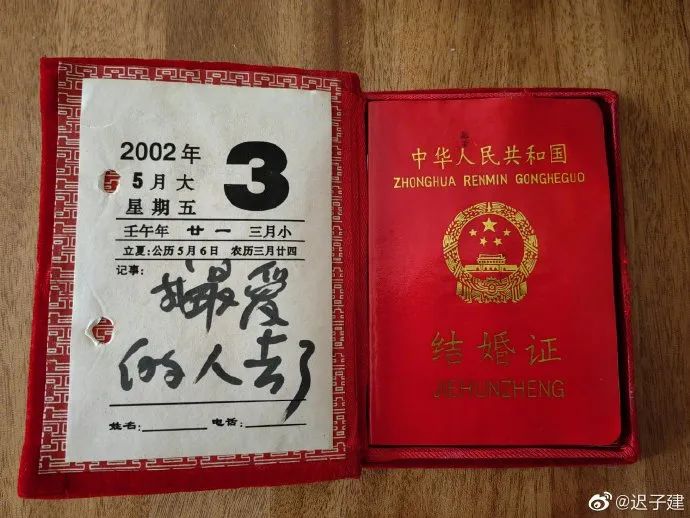 2002年
5月大
星期五
3
壬午年 廿一 三月小
立夏:公历5月6日 农历三月廿四
记事:
我最爱
的人去了
姓名: 电话:
中华人民共和国
ZHONGHUA RENMIN GONGHEGUO
结婚证
JIEHUNZHENG
@迟子建